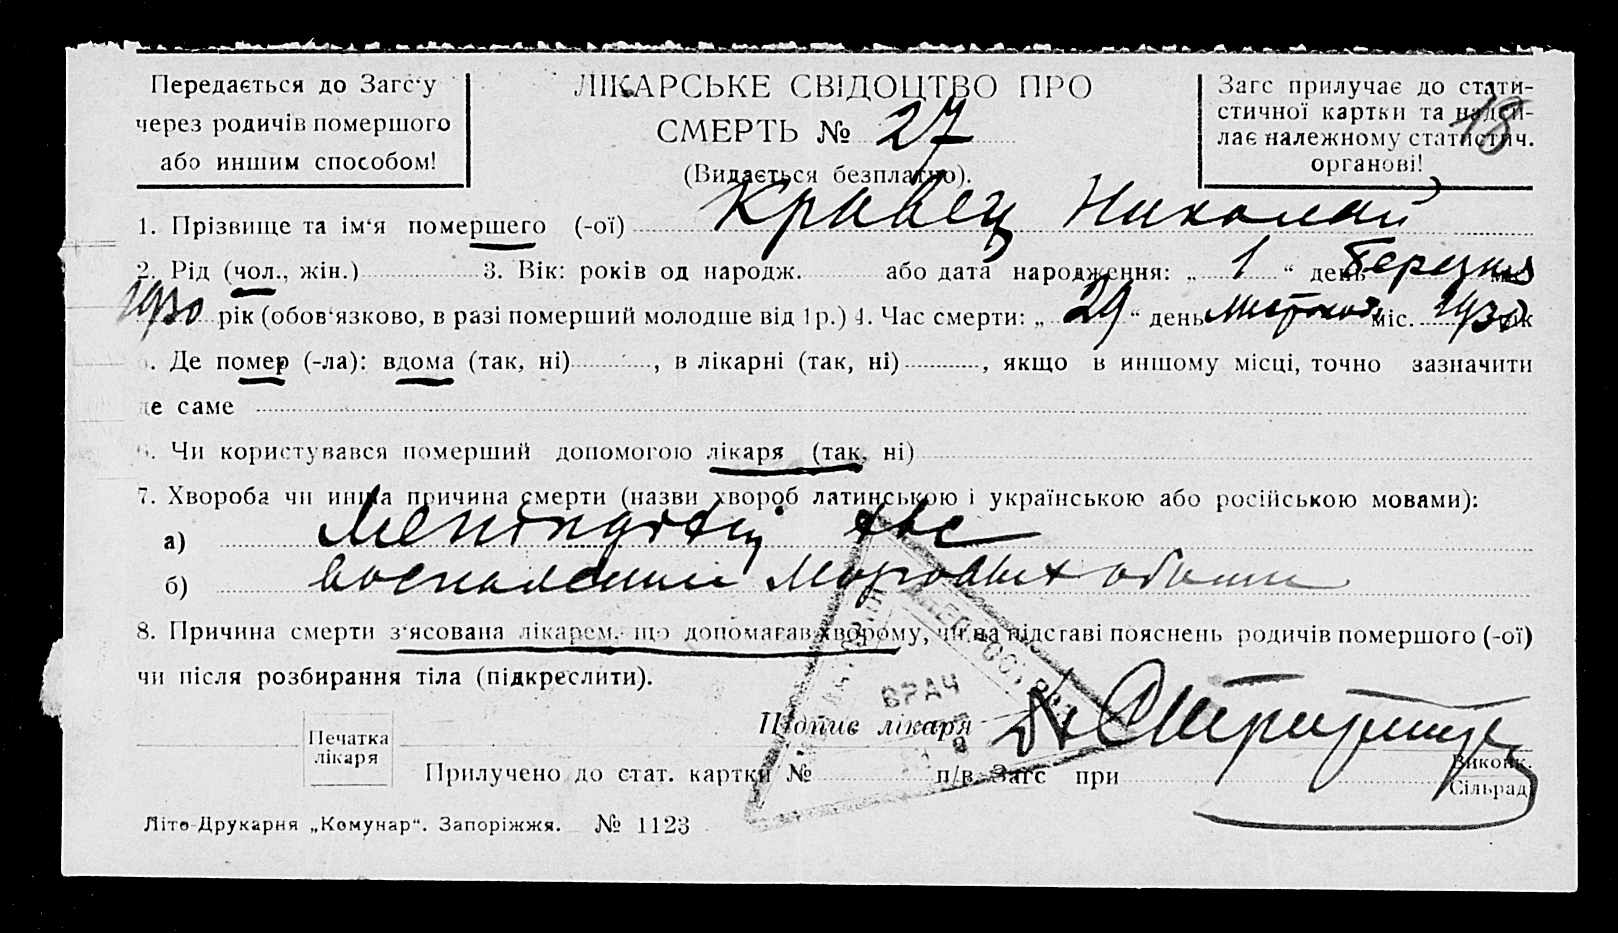 Передається до Загс'у
через родичів помершого
або иншим способом!
ЛІКАРСЬКЕ СВІДОЦТВО ПРО
СМЕРТЬ № 27
(Видається безплатно).
Загс прилучає до стати-
стичної картки та надси-
лає належному статистич.
органові!
18
1. Прізвище та ім'я помершего (-ої) Кравец Николай
2. Рід (чол., жін.) 3. Вік: років од народж. або дата народження: „ 1 “ день березня міс.
1930 рік (обов'язково, в разі померший молодше від 1 р.) 4. Час смерти: „ 29 “ день листопад міс. 1930 рік
5. Де помер (-ла): вдома (так, ні), в лікарні (так, ні), якщо в иншому місці, точно зазначити
де саме
6. Чи користувався померший допомогою лікаря (так, ні)
7. Хвороба чи инша причина смерти (назви хвороб латинською і українською або російською мовами):
а) tbc
б) воспаление мозговых оболочек
8. Причина смерти з'ясована лікарем, що допомагав хворому, чи на підставі пояснень родичів помершого (-ої)
чи після розбирання тіла (підкреслити).
ВРАЧ
Підпис лікаря
Печатка
лікаря
Прилучено до стат. картки № п/в Загс при
Виконк.
Сільрад
Літо-Друкарня „Комунар“. Запоріжжя. № 1123